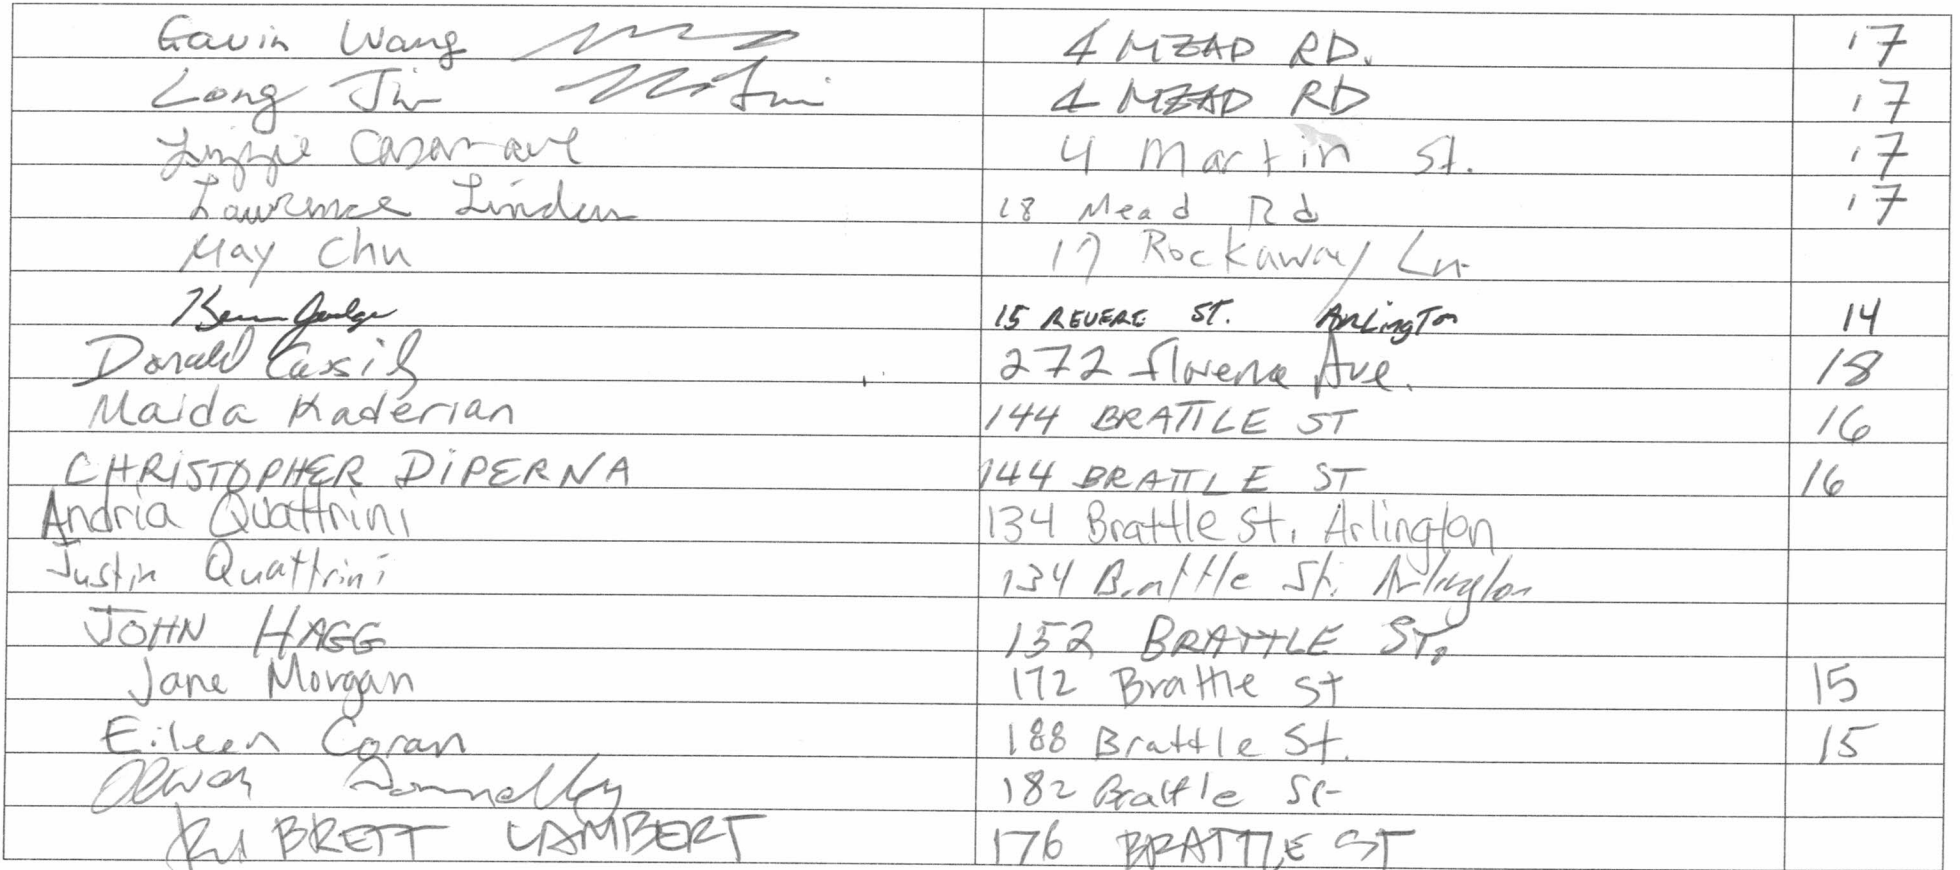 Gavin Wang 4 MEAD RD. '17
Long Jin 4 MEAD RD '17
Lizzie Casanave 4 Martin St. '17
Lawrence Linden 18 Mead Rd '17
May Chu 17 Rockaway Ln
15 REVERE ST. ArLingTon 14
Donald 272 Florence Ave. 18
Maida Kaderian 144 BRATTLE ST 16
CHRISTOPHER DiPERNA 144 BRATTLE ST 16
Andria Quattrini 134 Brattle St, Arlington
Justin Quattrini 134 Brattle St, Arlington
JOHN HAGG 152 BRATTLE ST.
Jane Morgan 172 Brattle St 15
Eileen Coran 188 Brattle St. 15
Donnelly 182 Brattle St
BRETT LAMBERT 176 BRATTLE ST